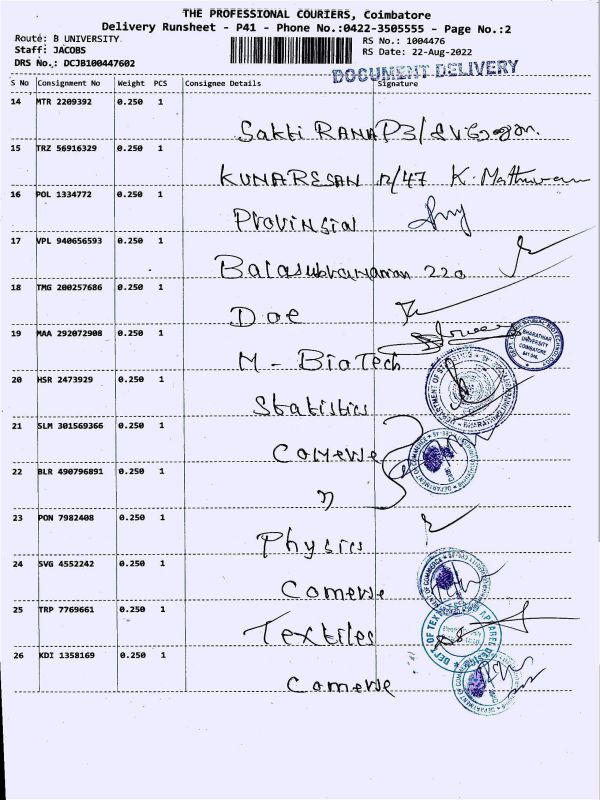 THE PROFESSIONAL COURIERS, Coimbatore
Delivery Runsheet - P41 - Phone No.:0422-3505555 - Page No.:2
Route: B UNIVERSITY
RS No.: 1004476
Staff: JACOBS
RS Date: 22-Aug-2022
DRS No.: DCJB100447602
DOCUMENT DELIVERY
S No Consignment No Weight PCS Consignee Details Signature
14 MTR 2209392 0.250 1
Sakti RANA P3/
15 TRZ 56916329 0.250 1
KUMARESAN 47 K.
16 POL 1334772 0.250 1
Provinsial
17 VPL 940656593 0.250 1
Balasubramanian 220
18 TMG 200257686 0.250 1
Doe
19 MAA 292072908 0.250 1
M - BioTech
BHARATHIAR UNIVERSITY COIMBATORE
20 HSR 2473929 0.250 1
Statistics
DEPARTMENT OF STATISTICS
21 SLM 301569366 0.250 1
Comewe
DEPARTMENT OF COMMERCE
22 BLR 490796891 0.250 1
23 PON 7982408 0.250 1
Physics
24 SVG 4552242 0.250 1
Comewe
DEPARTMENT OF COMMERCE
25 TRP 7769661 0.250 1
Textiles
DEPT OF TEXTILES APPAREL
26 KDI 1358169 0.250 1
Comewe
DEPARTMENT OF COMMERCE